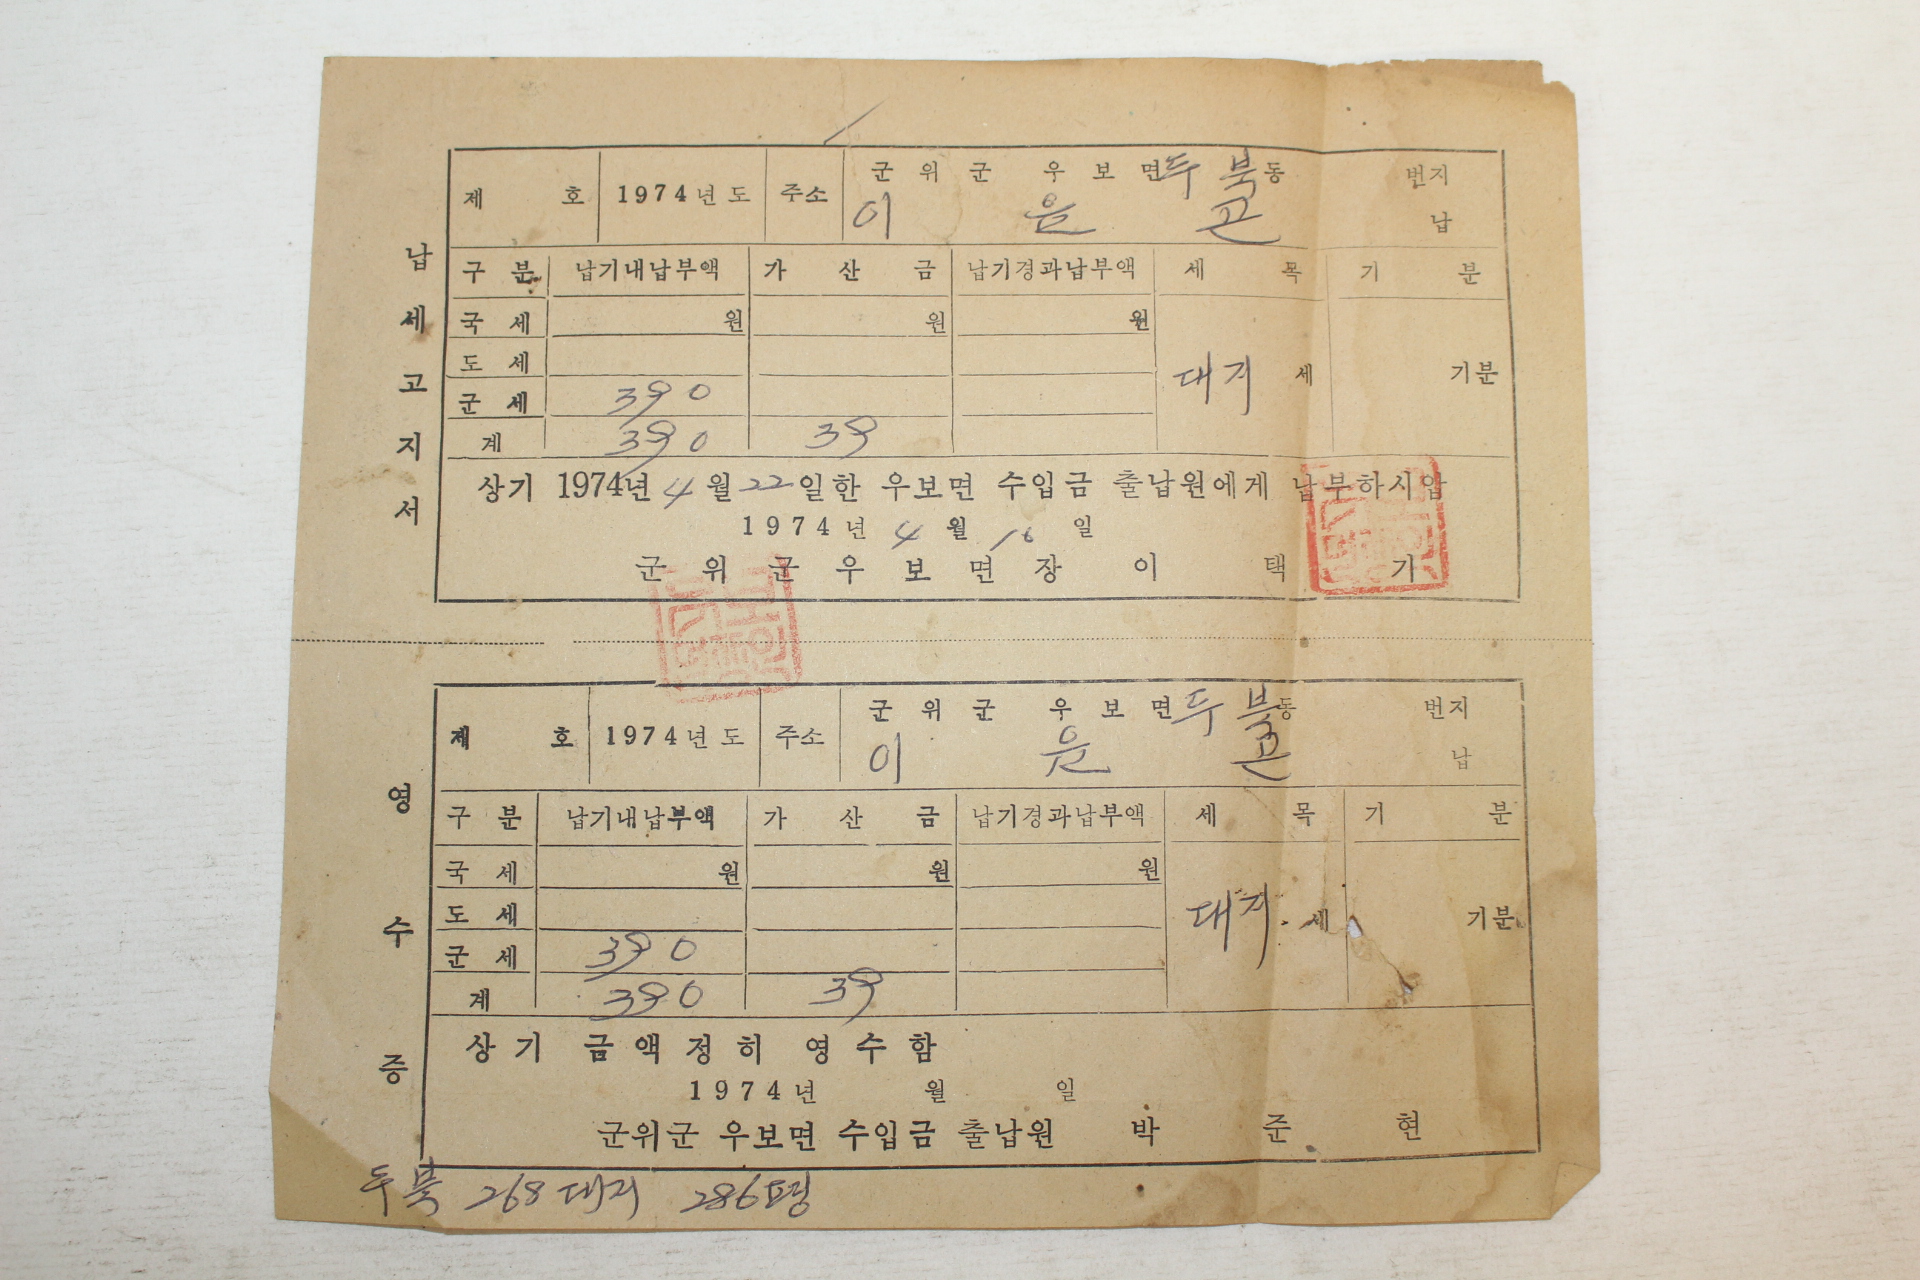 납세고지서
제 호 1974년도 주소 군위군 우보면 두북동 번지
이 윤 곤 납
구분 납기내납부액 가산금 납기경과납부액 세목 기분
국세 원 원 원
도세 대지 세 기분
군세 390
계 390 39
상기 1974년 4월 22일한 우보면 수입금 출납원에게 납부하시압
1974년 4월 16일
군위군우보면장 이택기
영수증
제 호 1974년도 주소 군위군 우보면 두북동 번지
이 윤 곤 납
구분 납기내납부액 가산금 납기경과납부액 세목 기분
국세 원 원 원
도세 대지 세 기분
군세 390
계 390 39
상기 금액정히 영수함
1974년 월 일
군위군 우보면 수입금 출납원 박준현
두북 268 대지 286평